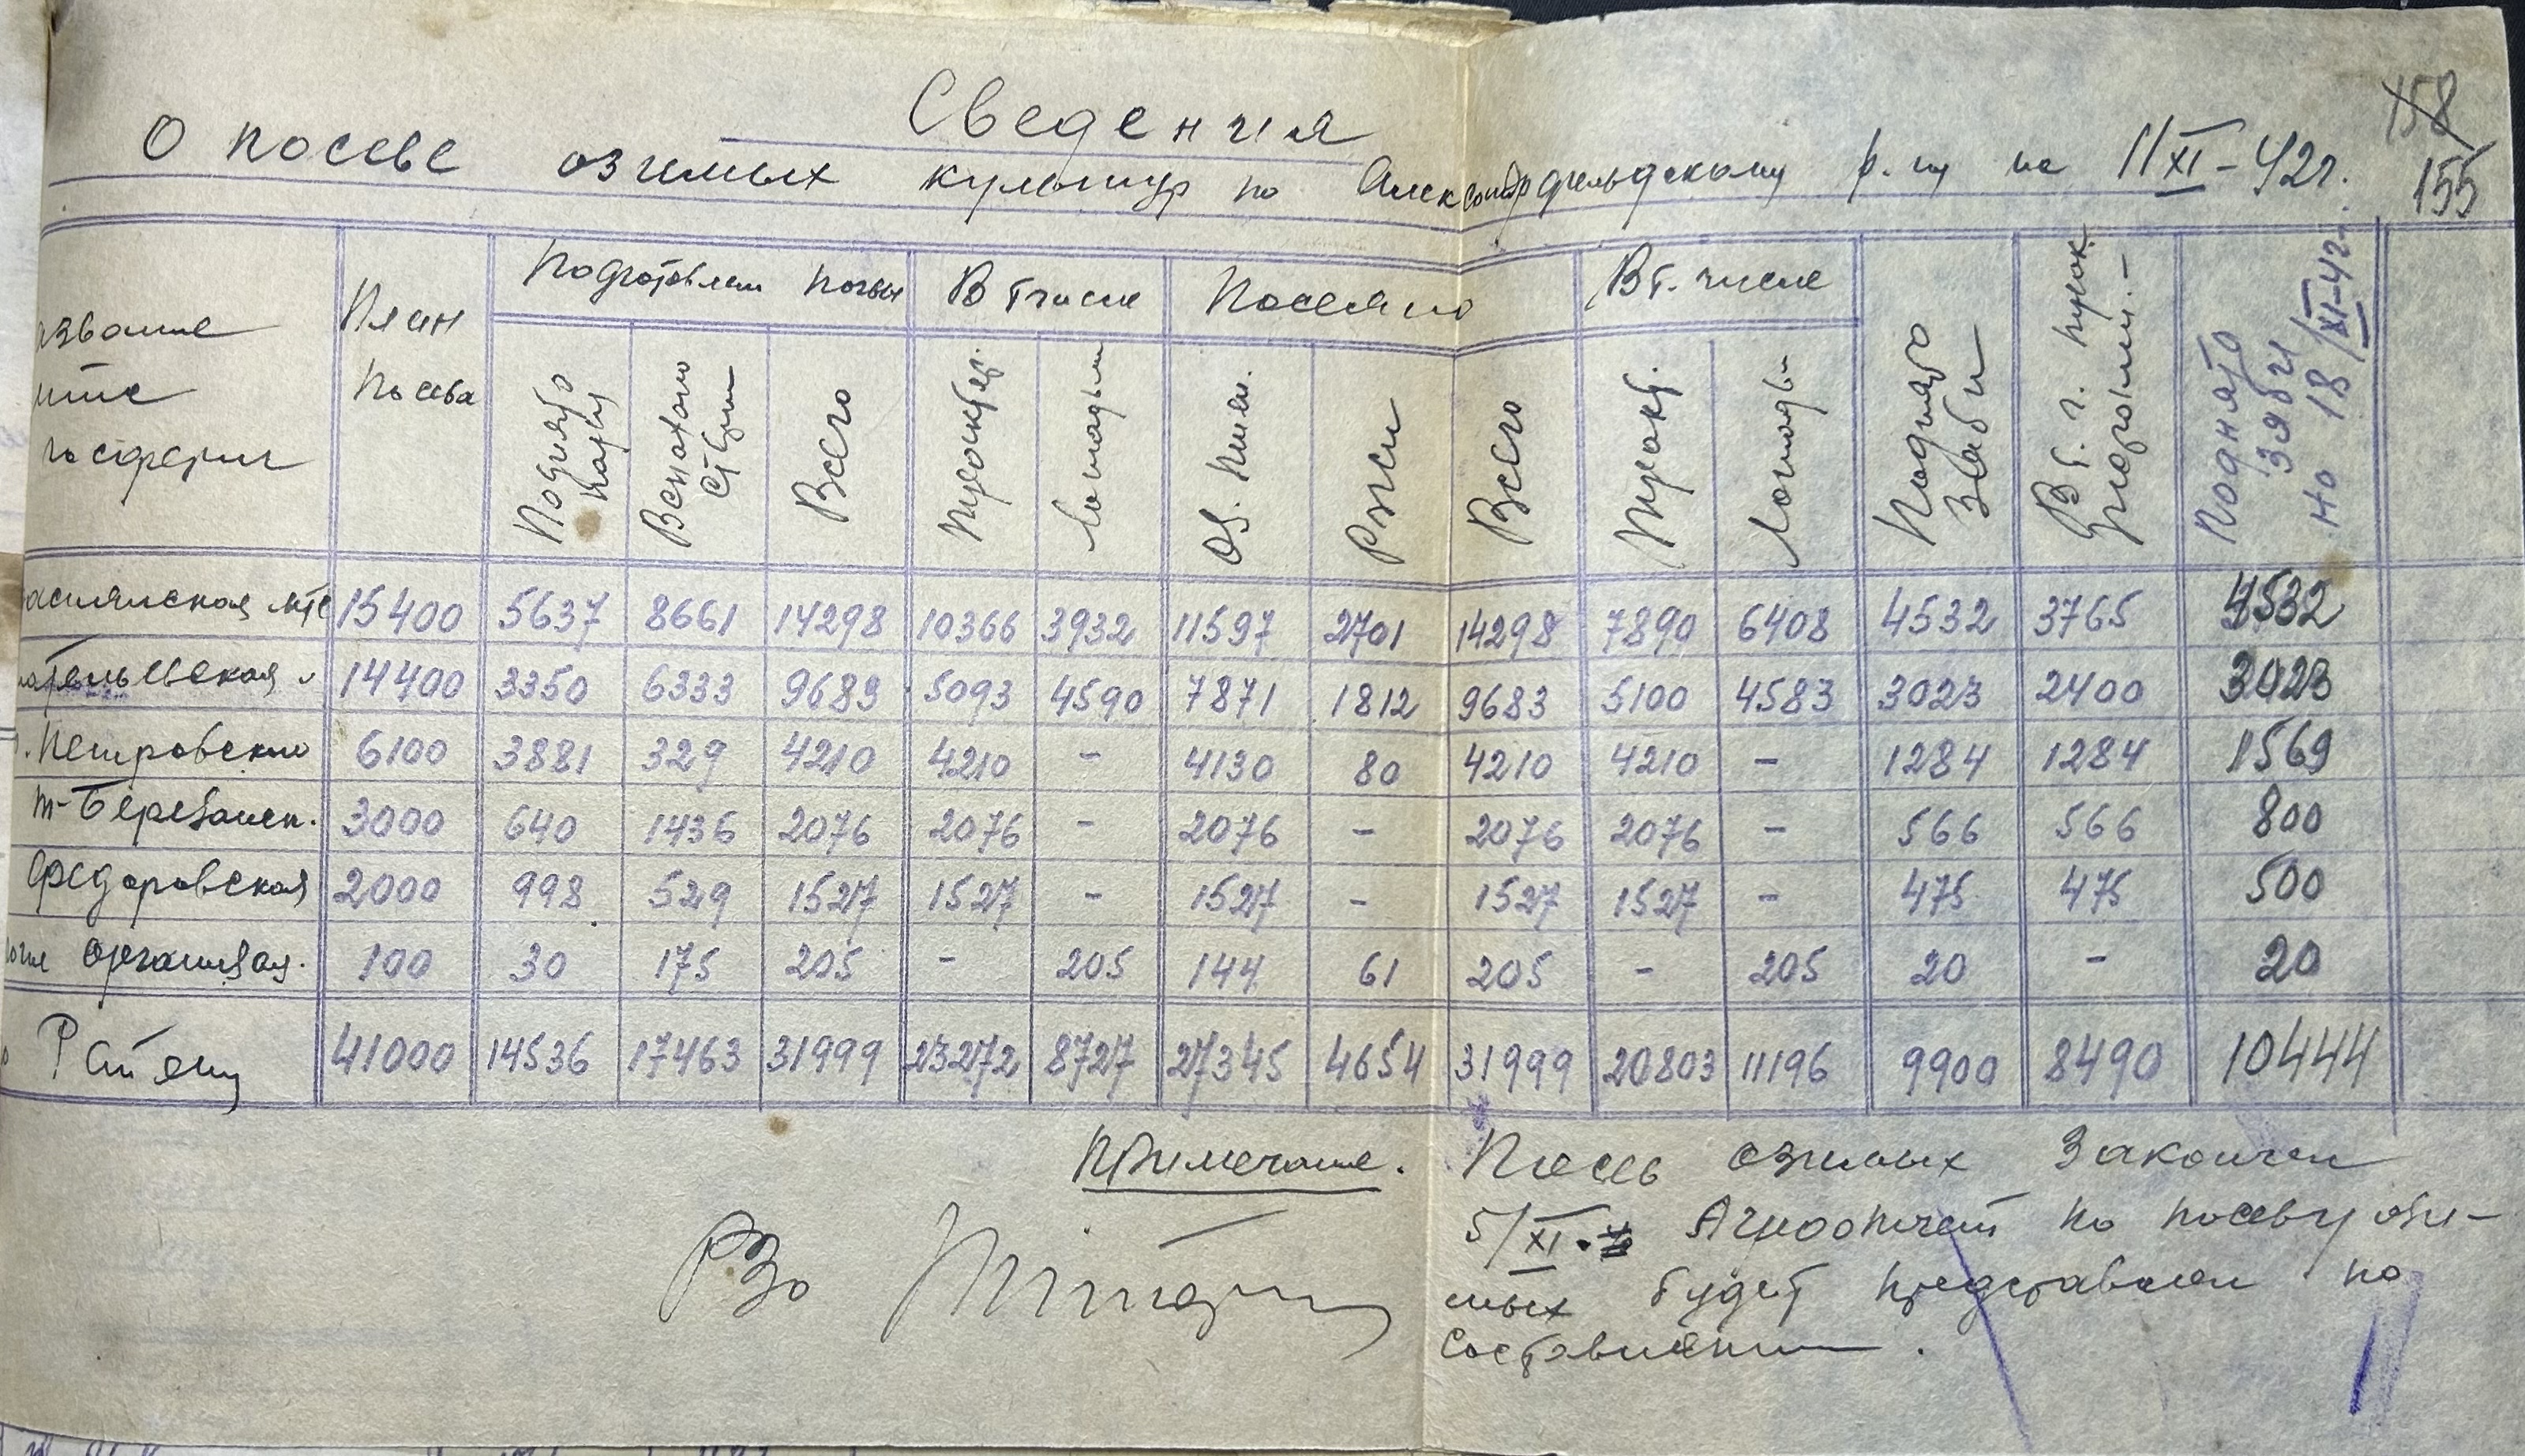 158
155
Сведения
О посеве озимых культур по Александрфельдскому р-ну на 11/XI-42г.
азвание План посева Подготовлен почвы В т числе Посеяно Вт. числе
Поднято пару Всего Лошадьм Оз. пшен. Ржи Всего Тракт. Лошадьм Поднято Зяби В т. г. Поднято зяби но 18/XI-42
асиляиская мтс 15400 5637 8661 14298 10366 3932 11597 2701 14298 7890 6408 4532 3765 4532
ательевская " 14400 3350 6333 9683 5093 4590 7871 1812 9683 5100 4583 3023 2400 3023
. Петровского 6100 3881 329 4210 4210 - 4130 80 4210 4210 - 1284 1284 1569
т-Березанск. 3000 640 1436 2076 2076 - 2076 - 2076 2076 - 566 566 800
Федоровская 2000 998 529 1527 1527 - 1527 - 1527 1527 - 475 475 500
очие организац. 100 30 175 205 - 205 144 61 205 - 205 20 - 20
о Райану 41000 14536 17463 31999 23272 8727 27345 4654 31999 20803 11196 9900 8490 10444
Примечание. Посев озимых закончен
5/XI. Агроотчет по посеву ози-
мых будет представлен по
составлении.
РЗо